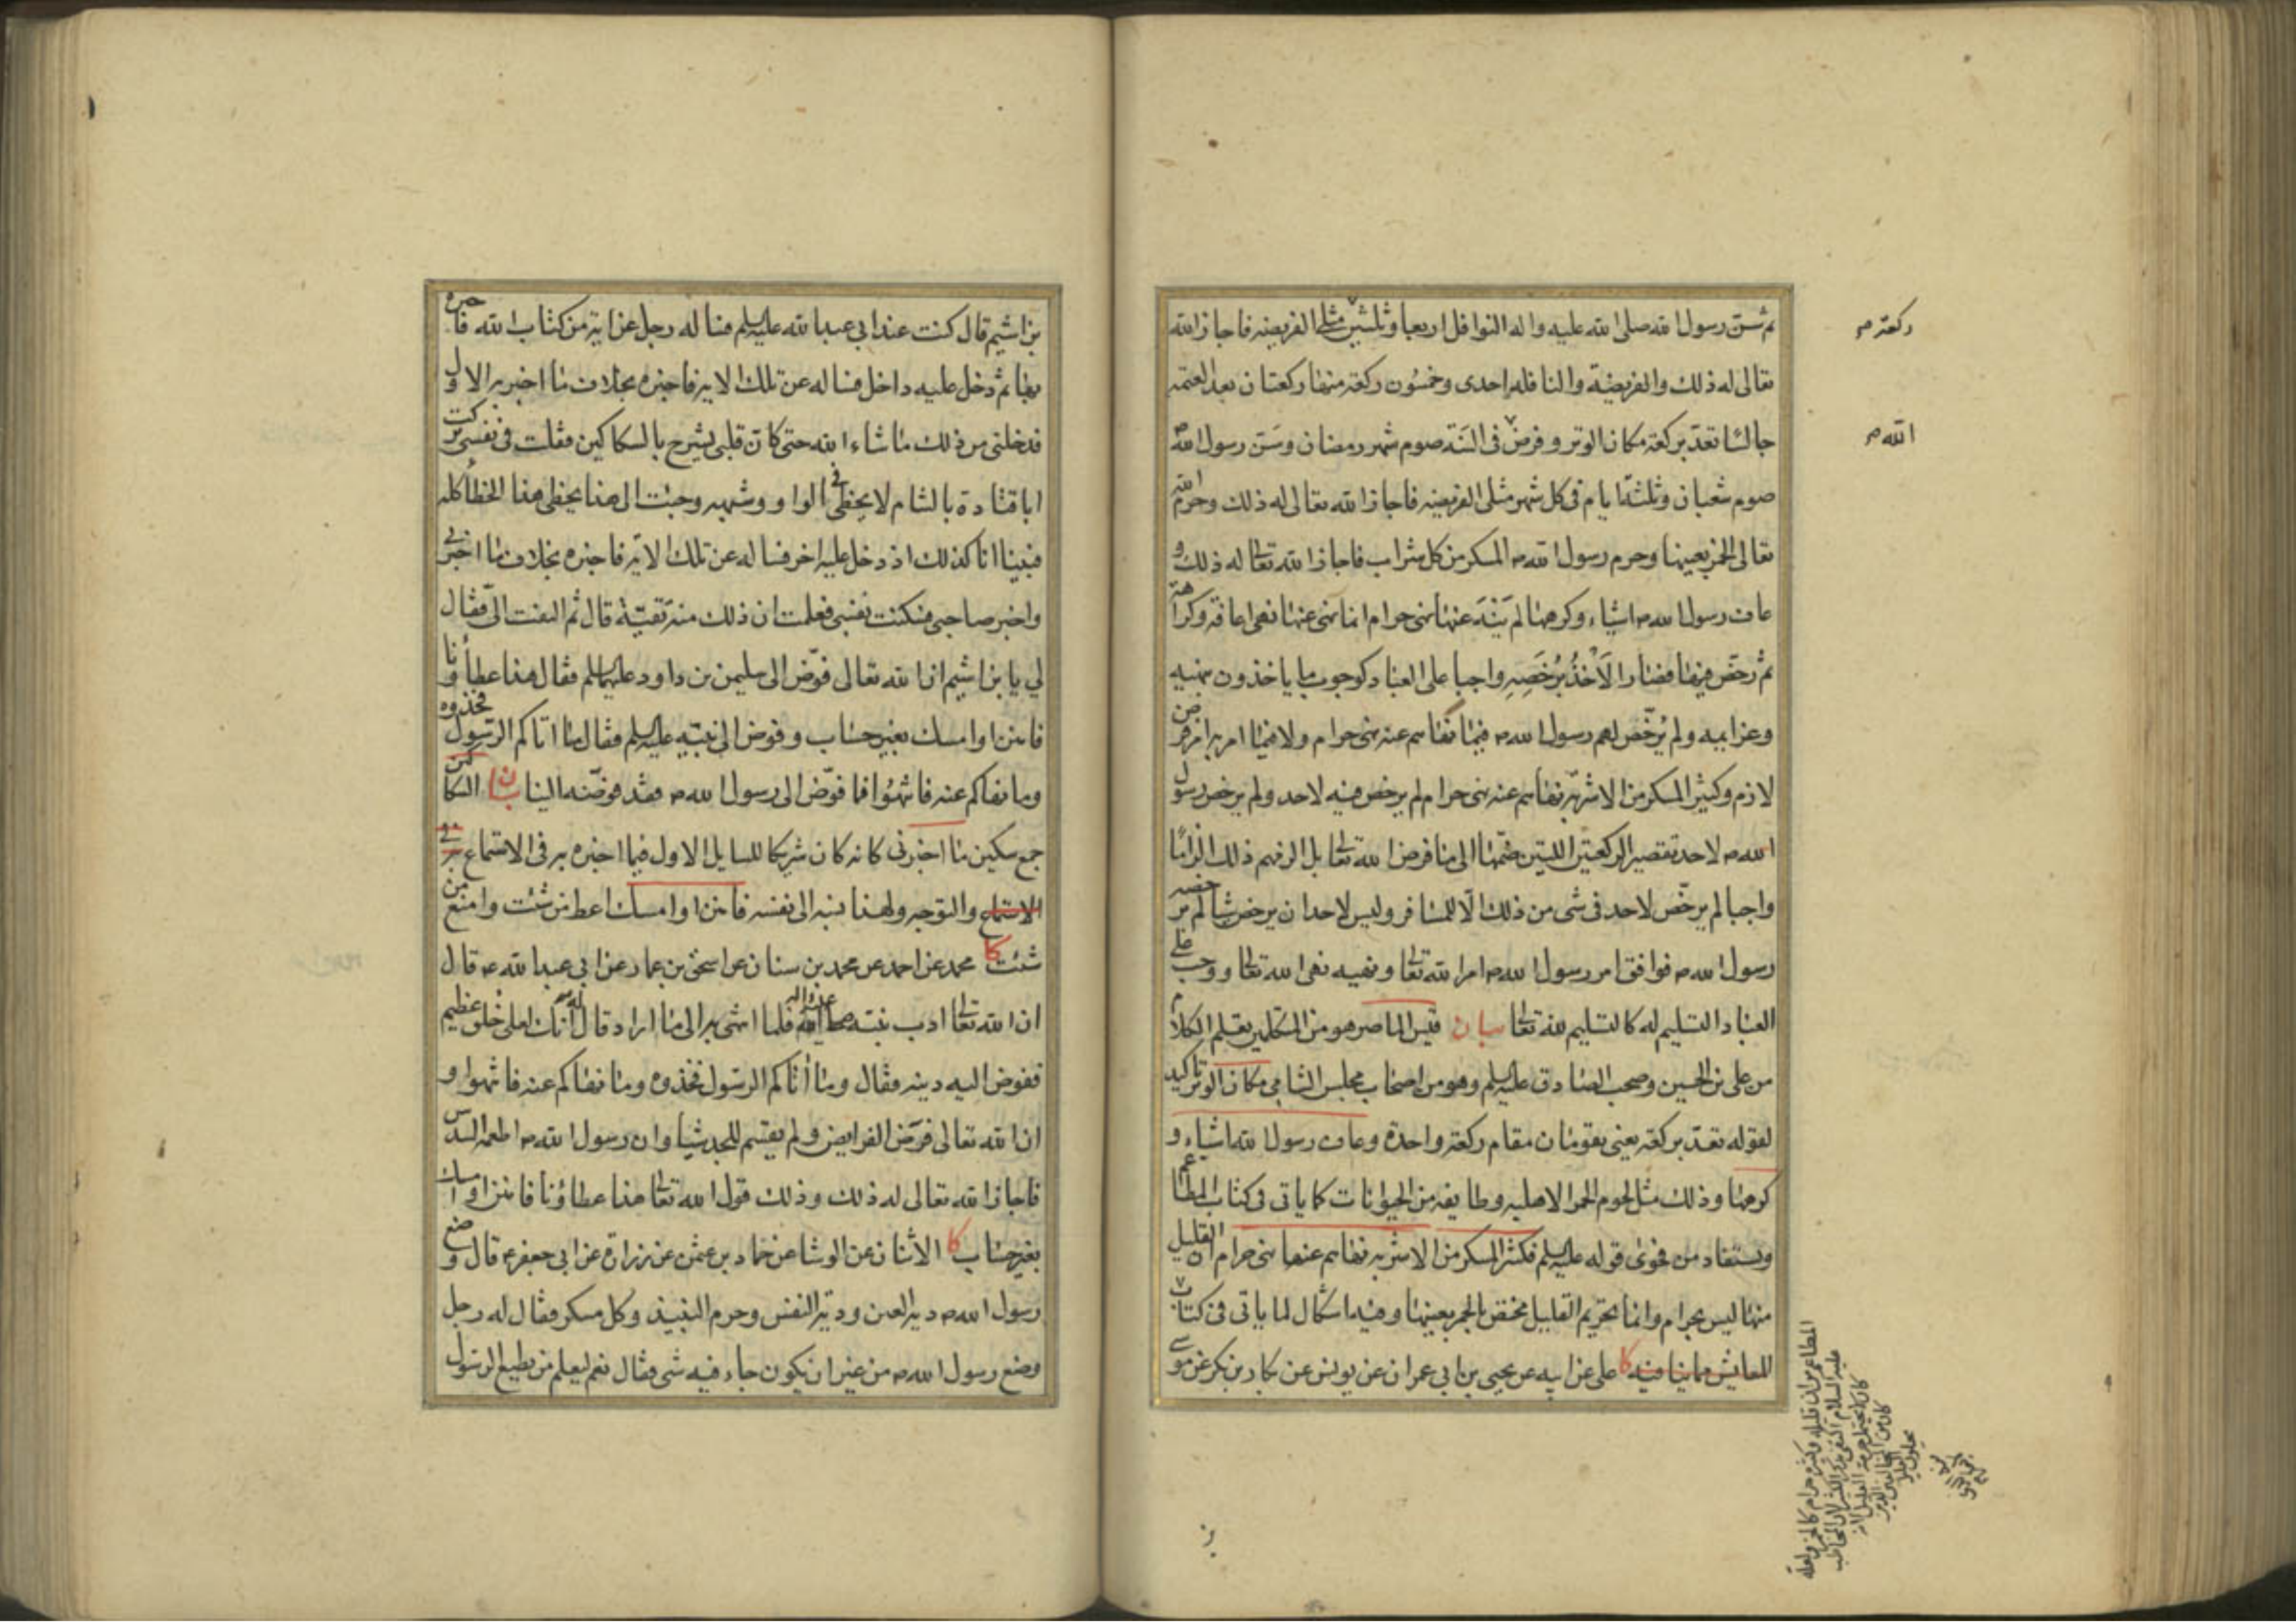 ثم سن رسول الله صلى الله عليه واله النوافل اربعا وثلثين مثلي الفريضه فاجاز الله
تعالى له ذلك والفريضة والنافله احدى وخمسون ركعة منها ركعتان بعد العتمه
جالسا تعد بركعة مكان الوتر وفرض في السنة صوم شهر رمضان وسن رسول الله
صوم شعبان وثلثة ايام في كل شهر مثلي الفريضه فاجاز الله تعالى له ذلك وحرم الله
تعالى الخمر بعينها وحرم رسول الله ص المسكر من كل شراب فاجاز الله تعالى له ذلك و
عاف رسول الله ص اشياء وكرهها لم ينه عنها نهى حرام انما نهى عنها نهى اعافة وكراهة
ثم رخص فيها فصار الاخذ برخصه واجبا على العباد كوجوب ما ياخذون بنهيه
وعزايمه ولم يرخص لهم رسول الله ص فيما نهاهم عنه نهى حرام ولا فيما امر به امر فرض
لازم وكثير المسكر من الاشربة نهاهم عنه نهى حرام لم يرخص فيه لاحد ولم يرخص رسول
الله ص لاحد تقصير الركعتين اللتين ضمهما الى ما فرض الله تعالى بل الزمهم ذلك الزاما
واجبا لم يرخص لاحد في شى من ذلك الا للمسافر وليس لاحد ان يرخص شيئا لم يرخصه
رسول الله ص فوافق امر رسول الله ص امر الله تعالى ونهيه نهى الله تعالى ووجب على
العباد التسليم له كالتسليم لله تعالى بيان قيس الماصر هو من المتكلمين تعلم الكلام
من على بن الحسين وصحب الصادق عليه السلم وهو من اصحاب مجلس الشامي مكان الوتر تاكيد
لقوله تعد بركعة يعنى يقومان مقام ركعة واحدة وعاف رسول الله اشياء و
كرهها وذلك مثل لحوم الحمر الاهليه وطايفه من الحيوانات كما ياتى فى كتاب المطاعم
ويستفاد من فحوى قوله عليه السلم فكثير المسكر من الاشربه نهاهم عنها نهى حرام ان القليل
منها ليس بحرام وانما تحريم القليل مختص بالخمر بعينها وفيه اشكال لما ياتى في كتاب
المعايش مما ينافيه كا على عن ابيه عن يحيى بن ابى عمران عن يونس عن بكار بن بكر عن موسى
ركعة صح
الله صح
بن اشيم قال كنت عند ابي عبد الله عليه السلم فساله رجل عن اية من كتاب الله فاخبره
بها ثم دخل عليه داخل فساله عن تلك الاية فاخبره بخلاف ما اخبر به الاول
فدخلنى من ذلك ما شاء الله حتى كان قلبى يشرح بالسكاكين فقلت في نفسى تركت
ابا قتادة بالشام لا يخطى في الواو وشبهه وجئت الى هذا يخطى هذا الخطأ كله
فبينا انا كذلك اذ دخل عليه اخر فساله عن تلك الاية فاخبره بخلاف ما اخبرنى
واخبر صاحبى فسكنت نفسى فعلمت ان ذلك منه تقية قال ثم التفت الى فقال
لي يا بن اشيم ان الله تعالى فوض الى سليمن بن داود عليهما السلم فقال هذا عطاؤنا
فامنن او امسك بغير حساب وفوض الى نبيه عليه السلم فقال ما اتاكم الرسول فخذوه
وما نهاكم عنه فانتهوا فما فوض الى رسول الله ص فقد فوضه الينا بيان السكاكين
جمع سكين ما اخبرنى كانه كان شريكا للسايل الاول فيما اخبره به فى الاستماع
الاستماع والتوجه ولهذا نسبه الى نفسه فامنن او امسك اعط من شئت وامنع من
شئت كا محمد عن احمد عن محمد بن سنان عن اسحق بن عمار عن ابي عبد الله ع قال
ان الله تعالى ادب نبيه صلى الله عليه واله فلما انتهى به الى ما اراد قال له انك لعلى خلق عظيم
ففوض اليه دينه فقال وما أتاكم الرسول فخذوه وما نهاكم عنه فانتهوا و
ان الله تعالى فرض الفرايض ولم يقسم للجد شيئا وان رسول الله ص اطعمه السدس
فاجاز الله تعالى له ذلك وذلك قول الله تعالى هذا عطاؤنا فامنن او امسك
بغير حساب كا الاثنان عن الوشا عن حماد بن عثمن عن زرارة عن ابى جعفر ع قال وضع
رسول الله ص دية العين ودية النفس وحرم النبيذ وكل مسكر فقال له رجل
وضع رسول الله ص من غير ان يكون جاء فيه شى فقال نعم ليعلم من يطيع الرسول